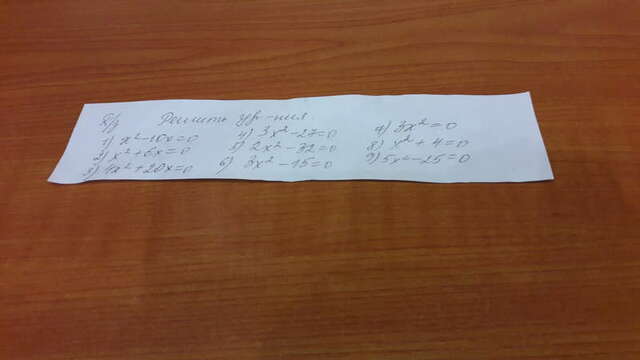 Д/з Решить ур-ния.
1) x²-10x=0
2) x²+6x=0
3) 4x²+20x=0
4) 3x²-27=0
5) 2x²-32=0
6) 3x²-15=0
7) 3x²=0
8) x²+4=0
9) 5x²-25=0